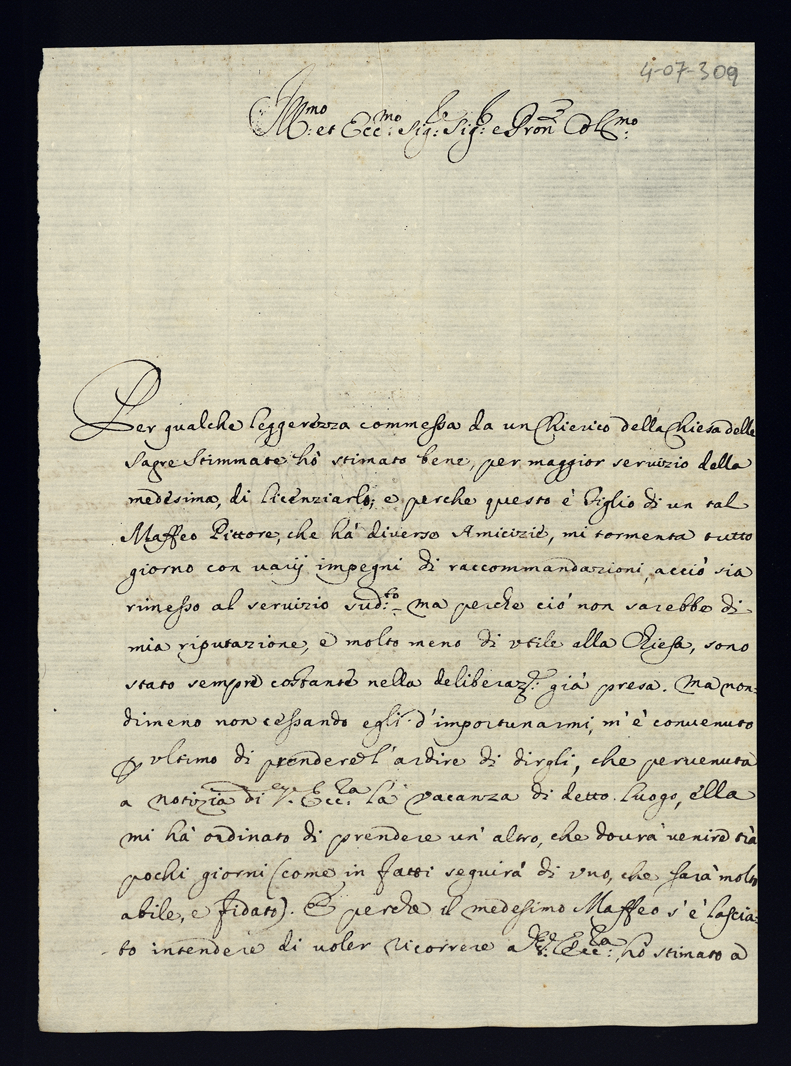 4-07-309
Ill.mo et Ecc.mo Sig.r Sig.r e Pron Col.mo
Per qualche leggerezza commessa da un Chierico della Chiesa delle
Sagre Stimmate hò stimato bene, per maggior servizio della
medesima, di licenziarlo; e perche questo è figlio di un tal
Maffeo Pittore, che hà diverse Amicizie, mi tormenta tutto
giorno con varij impegni di raccommandazioni acciò sia
rimesso al servizio sud.to ma perche ciò non sarebbe di
mia riputazione, e molto meno di utile alla Chiesa, sono
stato sempre costante nella deliberaz.e già presa. Ma non-
dimeno non cessando egli d'importunarmi, m'è convenuto
ultimo di prendere l'ardire di dirgli, che pervenuta
a notizia di V. Ecc.za la vacanza di detto luogo, ella
mi hà ordinato di prendere un'altro, che dovrà venire trà
pochi giorni (come in fatti seguirà di uno, che sarà molto
abile, e fidato). E perche il medesimo Maffeo s'è lascia-
to intendere di voler ricorrere a V. Ecc.za hò stimato a